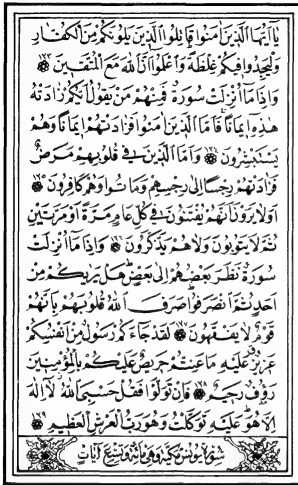 يَٓا اَيُّهَا الَّذ۪ينَ اٰمَنُوا قَاتِلُوا الَّذ۪ينَ يَلُونَكُمْ مِنَ الْكُفَّارِ
وَلْيَجِدُوا ف۪يكُمْ غِلْظَةًۜ وَاعْلَمُٓوا اَنَّ اللّٰهَ مَعَ الْمُتَّق۪ينَ ﴿١٢٣﴾
وَاِذَا مَٓا اُنْزِلَتْ سُورَةٌ فَمِنْهُمْ مَنْ يَقُولُ اَيُّكُمْ زَادَتْهُ
هٰذِه۪ٓ ا۪يمَانًاۚ فَاَمَّا الَّذ۪ينَ اٰمَنُوا فَزَادَتْهُمْ ا۪يمَانًا وَهُمْ
يَسْتَبْشِرُونَ ﴿١٢٤﴾ وَاَمَّا الَّذ۪ينَ ف۪ي قُلُوبِهِمْ مَرَضٌ
فَزَادَتْهُمْ رِجْسًا اِلٰى رِجْسِهِمْ وَمَاتُوا وَهُمْ كَافِرُونَ ﴿١٢٥﴾
اَوَلَا يَرَوْنَ اَنَّهُمْ يُفْتَنُونَ ف۪ي كُلِّ عَامٍ مَرَّةً اَوْ مَرَّتَيْنِ
ثُمَّ لَا يَتُوبُونَ وَلَا هُمْ يَذَّكَّرُونَ ﴿١٢٦﴾ وَاِذَا مَٓا اُنْزِلَتْ
سُورَةٌ نَظَرَ بَعْضُهُمْ اِلٰى بَعْضٍۜ هَلْ يَرٰيكُمْ مِنْ
اَحَدٍ ثُمَّ انْصَرَفُواۜ صَرَفَ اللّٰهُ قُلُوبَهُمْ بِاَنَّهُمْ
قَوْمٌ لَا يَفْقَهُونَ ﴿١٢٧﴾ لَقَدْ جَٓاءَكُمْ رَسُولٌ مِنْ اَنْفُسِكُمْ
عَز۪يزٌ عَلَيْهِ مَا عَنِتُّمْ حَر۪يصٌ عَلَيْكُمْ بِالْمُؤْمِن۪ينَ
رَؤُ۫فٌ رَح۪يمٌ ﴿١٢٨﴾ فَاِنْ تَوَلَّوْا فَقُلْ حَسْبِيَ اللّٰهُۘ لَٓا اِلٰهَ
اِلَّا هُوَۜ عَلَيْهِ تَوَكَّلْتُ وَهُوَ رَبُّ الْعَرْشِ الْعَظ۪يمِ ﴿١٢٩﴾
سُورَةُ يُونُسَ مَكِّيَّةٌ وَهِيَ مِائَةٌ وَتِسْعُ اٰيَاتٍ